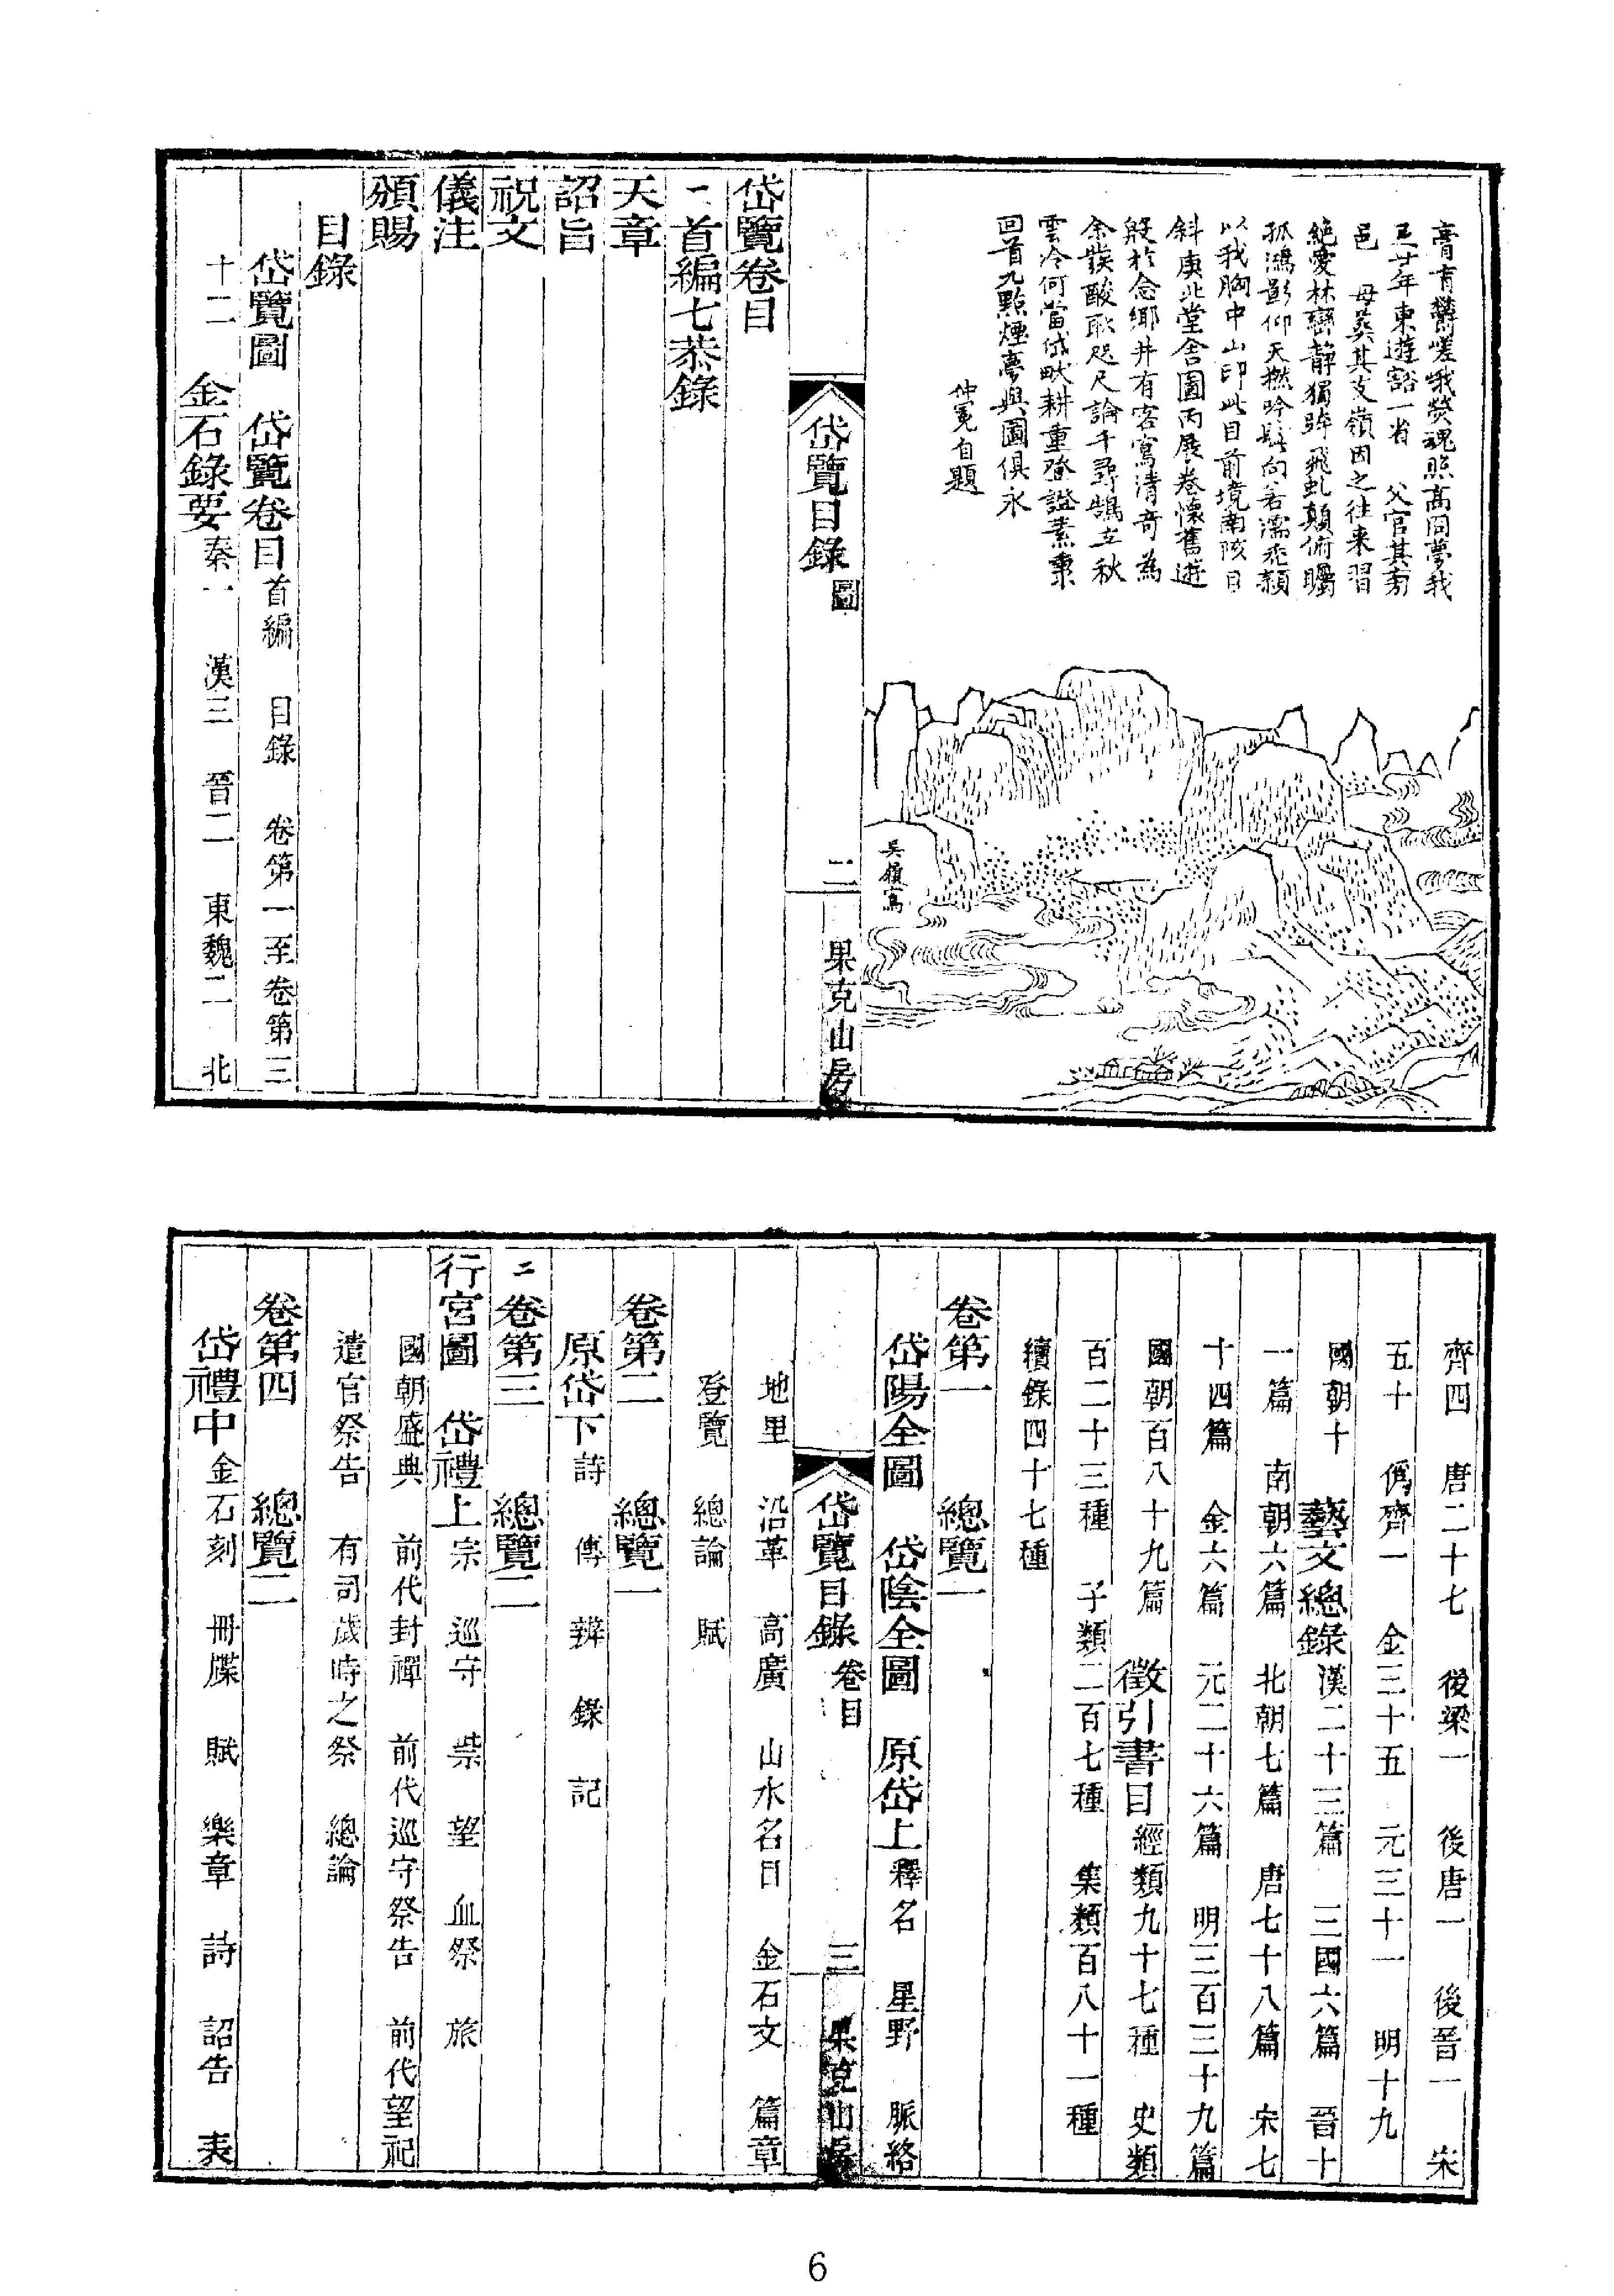 膏肓鬱嵯峨熒魂照高冋夢我
三廿年東遊豁一省　父官其旁
邑　母葬其支嶺因之往来習
絕愛林巒靜獨跨飛虬顛俯矚
孤鴻影仰天撚吟髭向若濡禿穎
以我胸中山印此目前境南陔日
斜庚北堂舍圖丙展卷懷舊遊
殷於念鄉井有客寫清奇為
余葉酸耿咫尺論千尋鵠立秋
雲冷何當岱畎耕重登證素秉
回首九點煙夢與圖俱永
仲冕自題
吳嶺寫
岱覽目錄　圖　二　果克山房
岱覽卷目
一　首編七恭錄
天章
詔旨
祝文
儀注
頒賜
目錄
岱覽圖　岱覽卷目　首編　目錄　卷第一至卷第三
十二　金石錄要　秦一　漢三　晉二　東魏二　北
齊四　唐二十七　後梁一　後唐一　後晉一　宋
五十　僞齊一　金三十五　元三十一　明十九
國朝十　藝文總錄　漢二十三篇　三國六篇　晉十
一篇　南朝六篇　北朝七篇　唐七十八篇　宋七
十四篇　金六篇　元二十六篇　明三百三十九篇
國朝百八十九篇　徵引書目　經類九十七種　史類
百二十三種　子類二百七種　集類百八十一種
續錄四十七種
卷第一　總覽一
岱陽全圖　岱陰全圖　原岱上　釋名　星野　脈絡
岱覽目錄　卷目　三　果克山房
地里　沿革　高廣　山水名目　金石文　篇章
登覽　總論　賦
卷第二　總覽一
原岱下　詩　傳　辨　錄　記
二　卷第三　總覽二
行宮圖　岱禮上　宗　巡守　柴　望　血祭　旅
國朝盛典　前代封禪　前代巡守祭告　前代望祀
遣官祭告　有司歲時之祭　總論
卷第四　總覽二
岱禮中　金石刻　冊牒　賦　樂章　詩　詔告　表
6